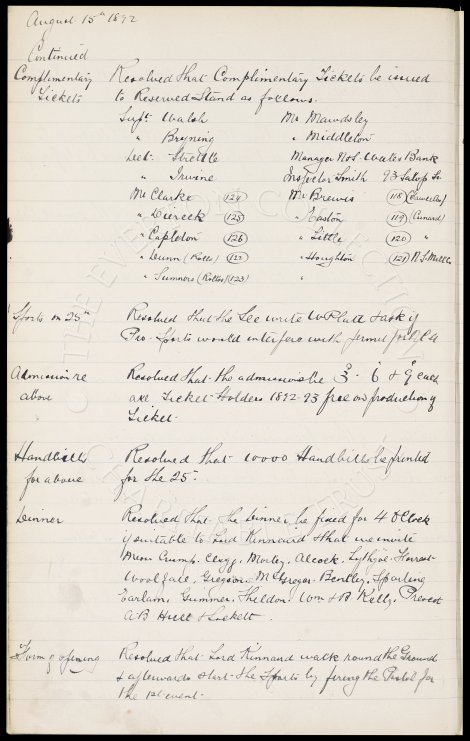 August 15th 1892
Continued
Complimentary Tickets
Resolved that Complimentary Tickets be issued
to Reserved Stand as follows.
Supt. Walsh Mr Mawdsley
" Bryning " Middleton
Lieut. Manager N & S. Wales Bank
" Irvine Inspector Smith 93 Salop St
Mr Clarke (124) Mr Brewis (118)
" (125) " Easton (119) (Cunard)
" Capleton (126) " Little (120) "
" Dunn (122) " Houghton (121)
" Summers (123) "
Sports on 25th
Resolved that the Sec write W Platt & ask if
Pro. Sports would interfere with permit for
Admission re above
Resolved that the admission be 3d. 6d & 9d each
Ticket Holders 1892-93 free on production of
Ticket.
Handbills for above
Resolved that 10000 Handbills be printed
for the 25th.
Dinner
Resolved that the Dinner be fixed for 4 O'Clock
if suitable to Lord Kinnaird & that we invite
Messrs Crump. Clegg. Morley. Alcock. Lythgoe. Forrest
Woolfall. Gregson. McGregor. Bentley. Sparling
Earlam. Gunner. Sheldon. Wm & B. Kelly. Prevost
A B Hull & Lockett.
Form of opening
Resolved that Lord Kinnaird walk round the Ground
& afterwards start the Sports by firing the Pistol for
the 1st event.
THE EVERTON COLLECTION
CHARITABLE TRUST